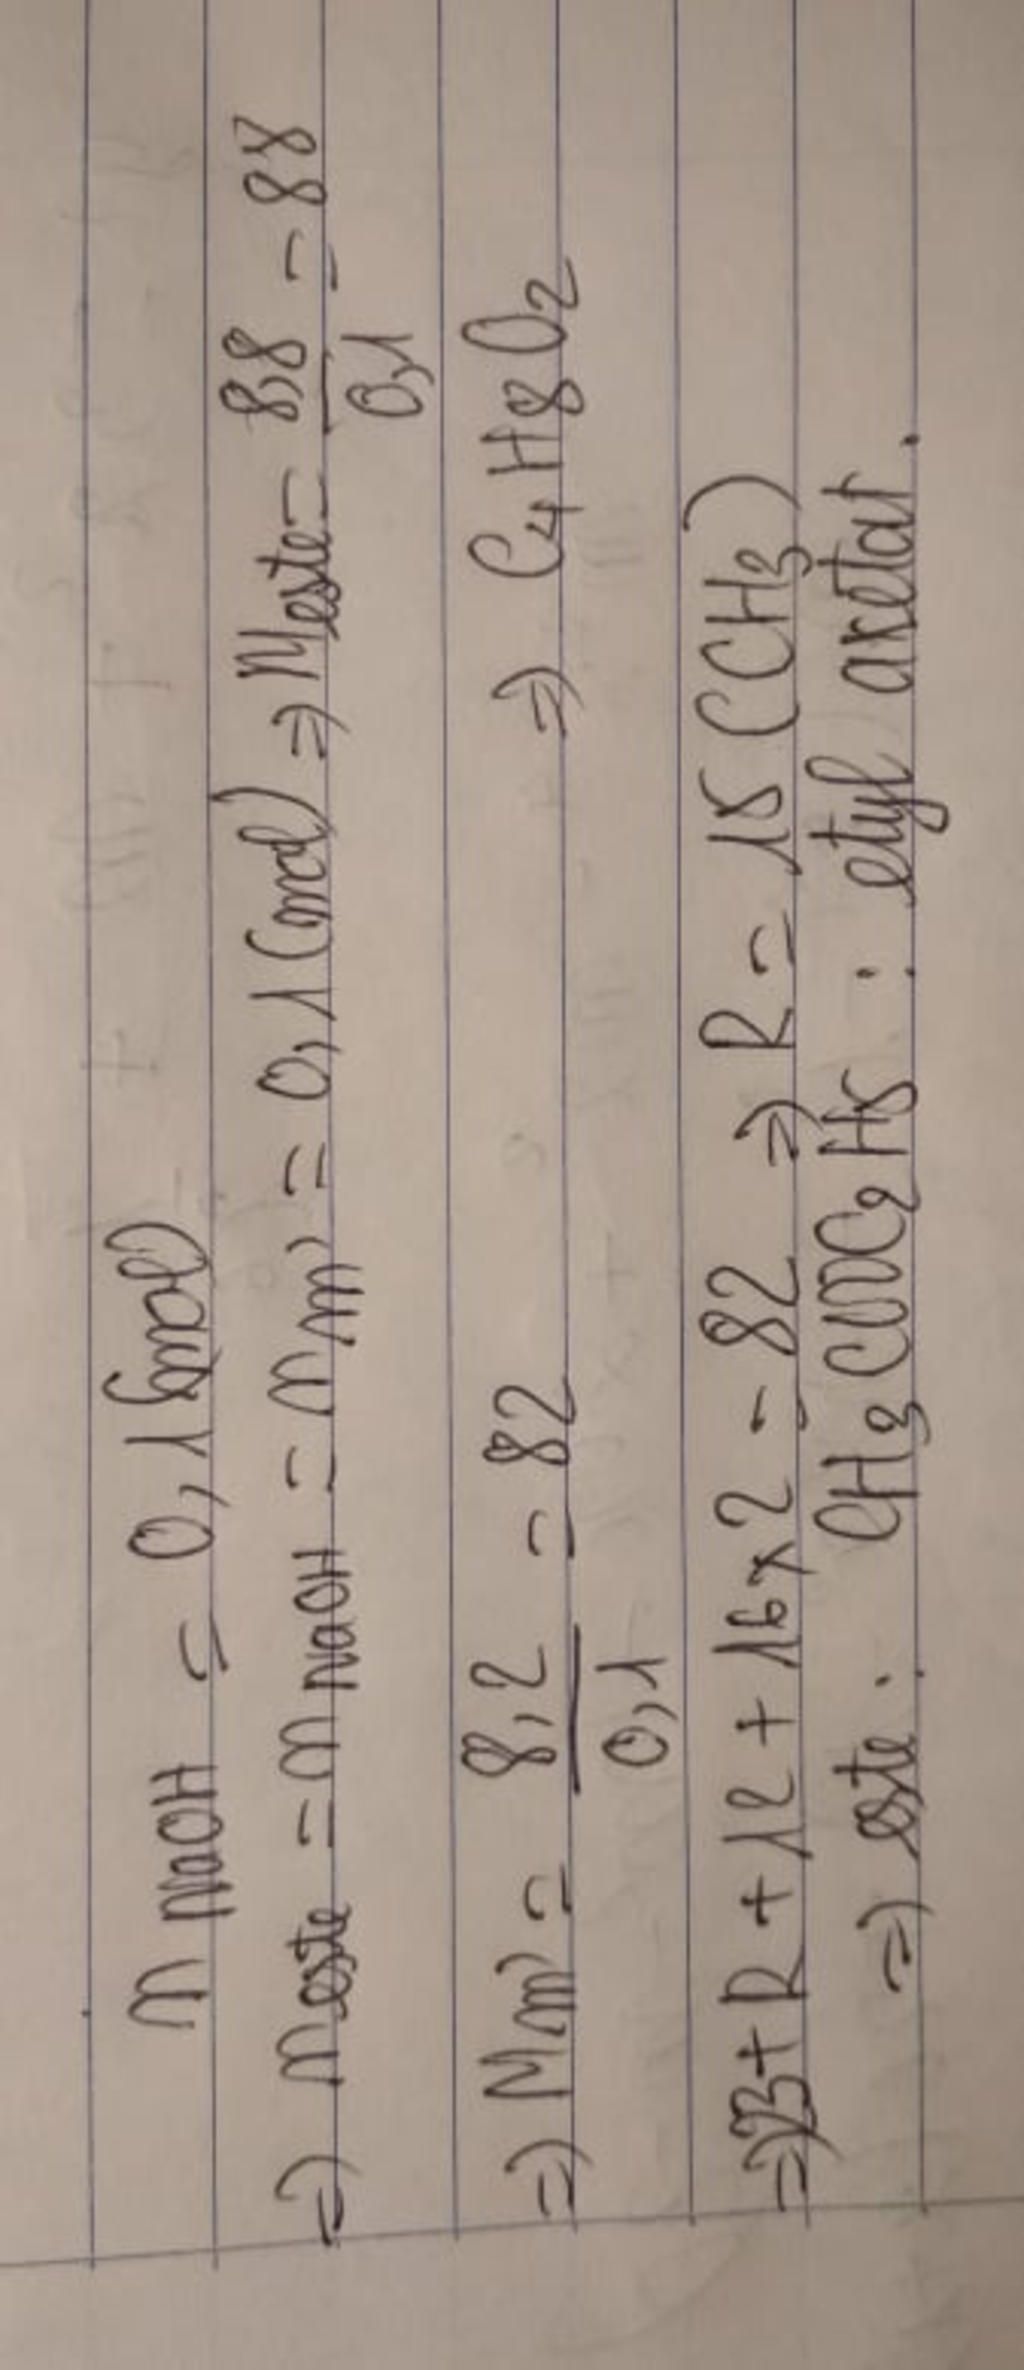 n NaOH = 0,1 (mol)
=) n este = n NaOH = n m' = 0,1 (mol) =) M este = 8,8 / 0,1 = 88
=) M m' = 8,2 / 0,1 = 82 =) C4H8O2
=) 23 + R + 12 + 16 x 2 = 82 =) R = 15 (CH3)
=) este : CH3COOC2H5 : etyl axetat.